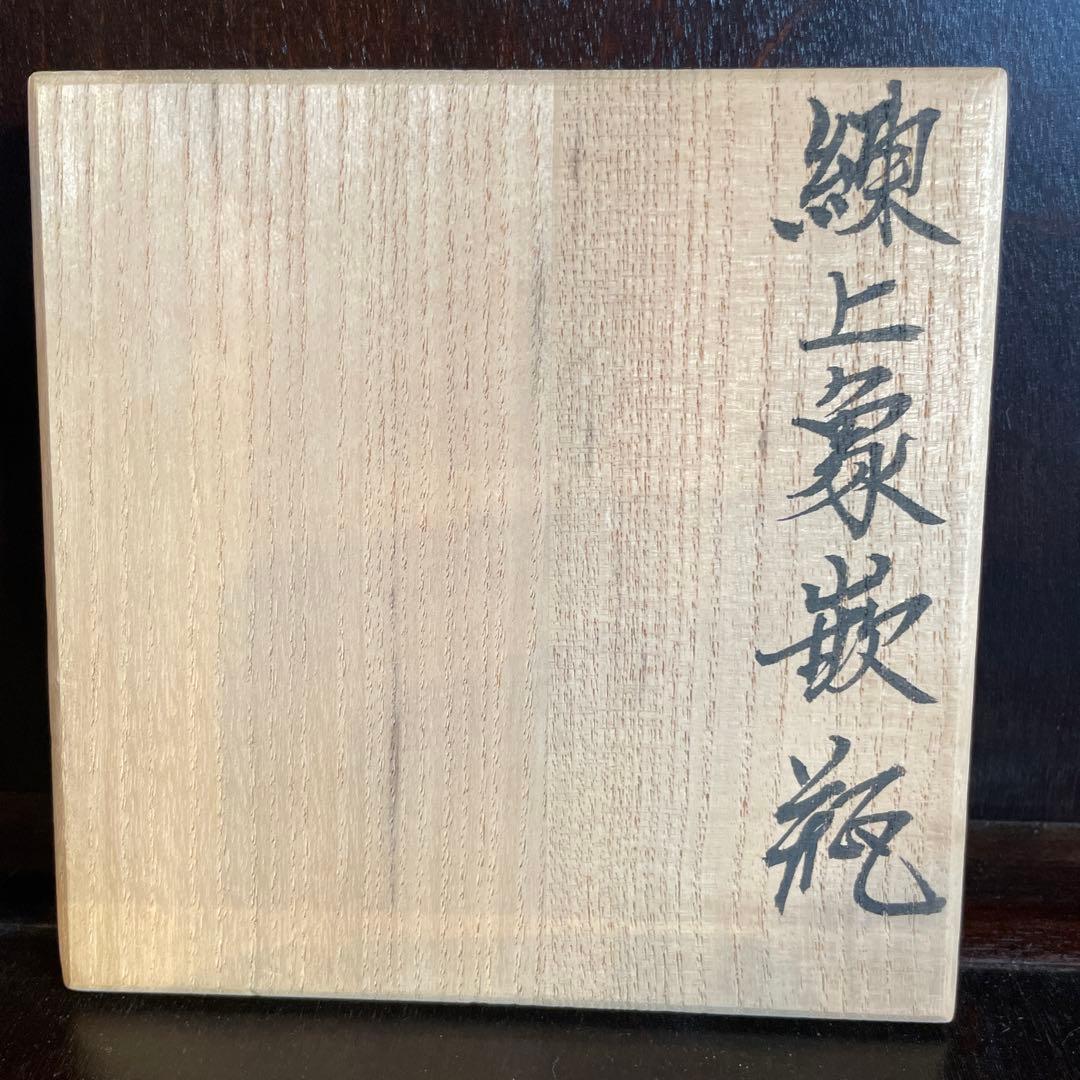 練上象嵌瓶